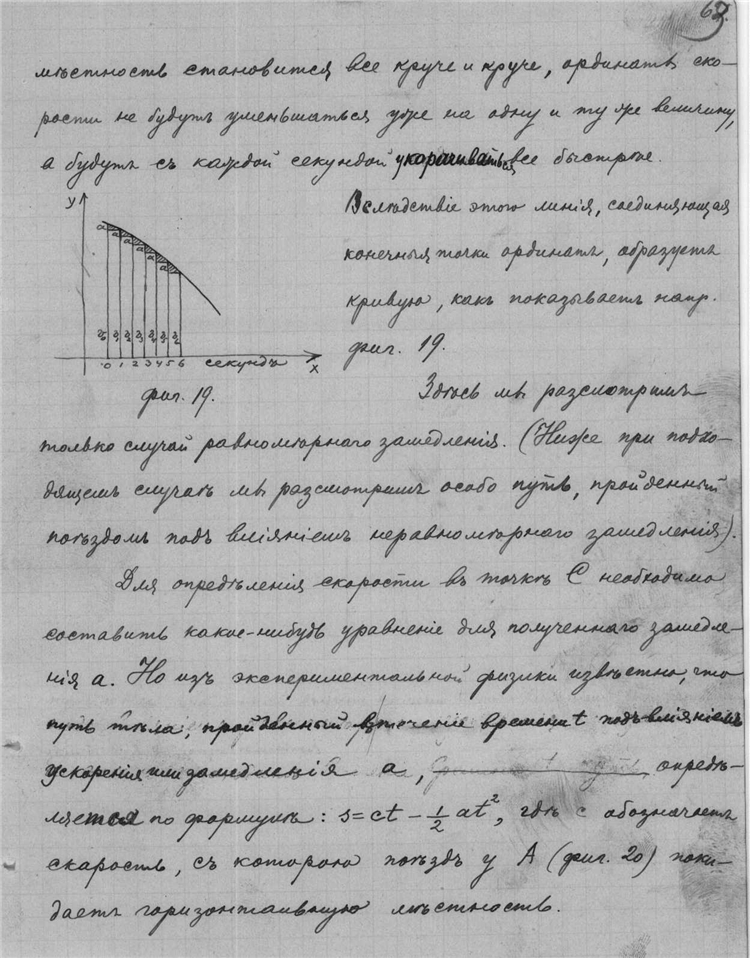 62.
мѣстность становится все круче и круче, ордината ско-
рости не будутъ уменьшаться уже на одну и ту же величину,
а будутъ съ каждой секундой укорачиваться все быстрѣе.
Вслѣдствіе этого линія, соединяющая
конечныя точки ординатъ, образуетъ
кривую, какъ показываетъ напр.
фиг. 19.
y
a a a a a a
v₀ v₁ v₂ v₃ v₄ v₅
0 1 2 3 4 5 6 секундъ x
фиг. 19.
Здѣсь мы разсмотримъ
только случай равномѣрнаго замедленія. (Ниже при подхо-
дящемъ случаѣ мы разсмотримъ особо путь, пройденный
поѣздомъ подъ вліяніемъ неравномѣрнаго замедленія).
Для опредѣленія скорости въ точкѣ С необходимо
составить какое-нибудь уравненіе для полученнаго замедле-
нія а. Но изъ экспериментальной физики извѣстно, что
путь тѣла, пройденный втеченіе времени t подъ вліяніемъ
ускоренія или замедленія а, опредѣ-
ляется по формулѣ: s=ct-½at², гдѣ с обозначаетъ
скорость, съ которою поѣздъ у А (фиг. 20) поки-
даетъ горизонтальную мѣстность.